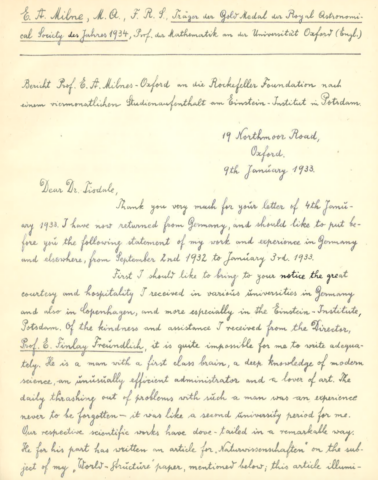 E. A. Milne, M. A., F. R. S., Träger der Gold Medal der Royal Astronomi-
cal Society des Jahres 1934, Prof. der Mathematik an der Universität Oxford (Engl.)
Bericht Prof. E. A. Milnes-Oxford an die Rockefeller Foundation nach
einem viermonatlichen Studienaufenthalt am Einstein-Institut in Potsdam.
19 Northmoor Road,
Oxford.
9th January 1933.
Dear Dr. Tisdale,
Thank you very much for your letter of 4th Janu-
ary 1933. I have now returned from Germany, and should like to put be-
fore you the following statement of my work and experience in Germany
and elsewhere, from September 2nd 1932 to January 3rd. 1933.
First I should like to bring to your notice the great
courtesy and hospitality I received in various universities in Germany
and also in Copenhagen, and more especially in the Einstein-Institute,
Potsdam. Of the kindness and assistance I received from the Director,
Prof. E. Finlay Freundlich, it is quite impossible for me to write adequa-
tely. He is a man with a first class brain, a deep knowledge of modern
science, an unusually efficient administrator and a lover of art. The
daily thrashing out of problems with such a man was an experience
never to be forgotten - it was like a second university period for me.
Our respective scientific works have dove-tailed in a remarkable way.
He for his part has written an article for „Naturwissenschaften" on the sub-
ject of my „World-Structure" paper, mentioned below; this article illumi-